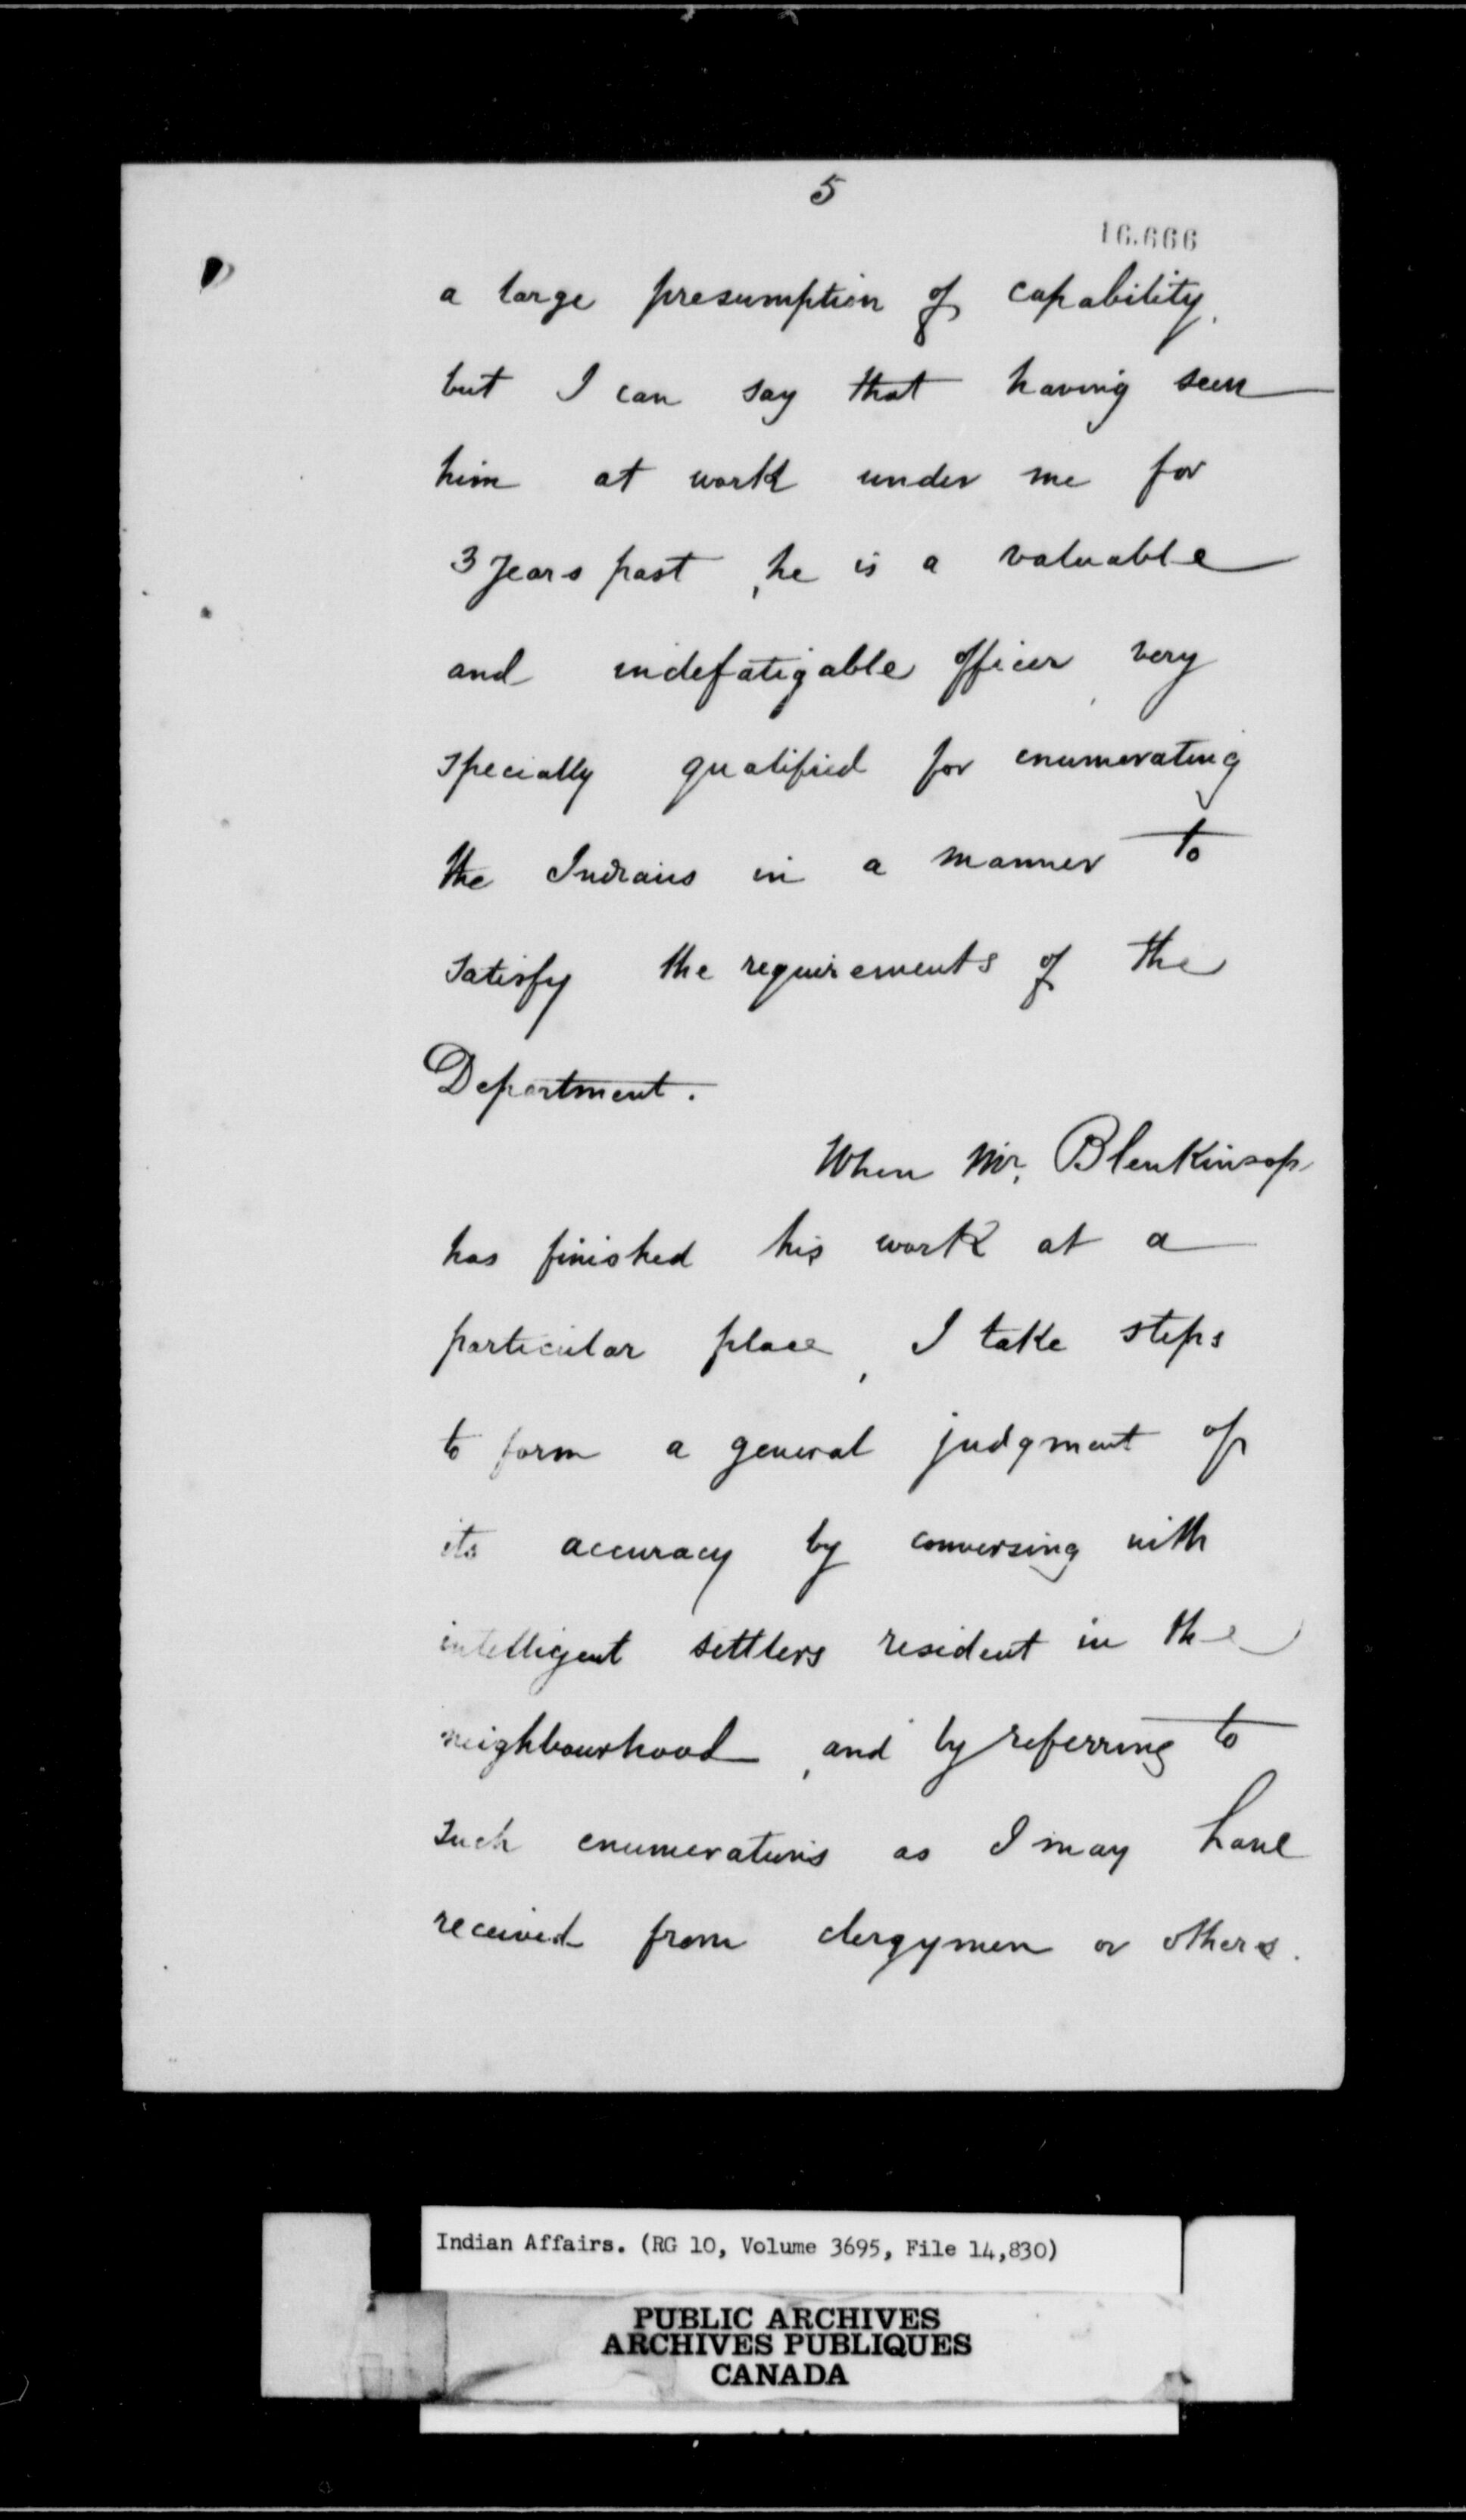 5
16.666
a large presumption of capability,
but I can say that having seen
him at work under me for
3 years past, he is a valuable
and indefatigable officer, very
specially qualified for enumerating
the Indians in a manner to
satisfy the requirements of the
Department.
When Mr. Blenkinsop
has finished his work at a
particular place, I take steps
to form a general judgment of
its accuracy by conversing with
intelligent settlers resident in the
neighbourhood, and by referring to
such enumerations as I may have
received from clergymen or others.
Indian Affairs. (RG 10, Volume 3695, File 14,830)
PUBLIC ARCHIVES
ARCHIVES PUBLIQUES
CANADA